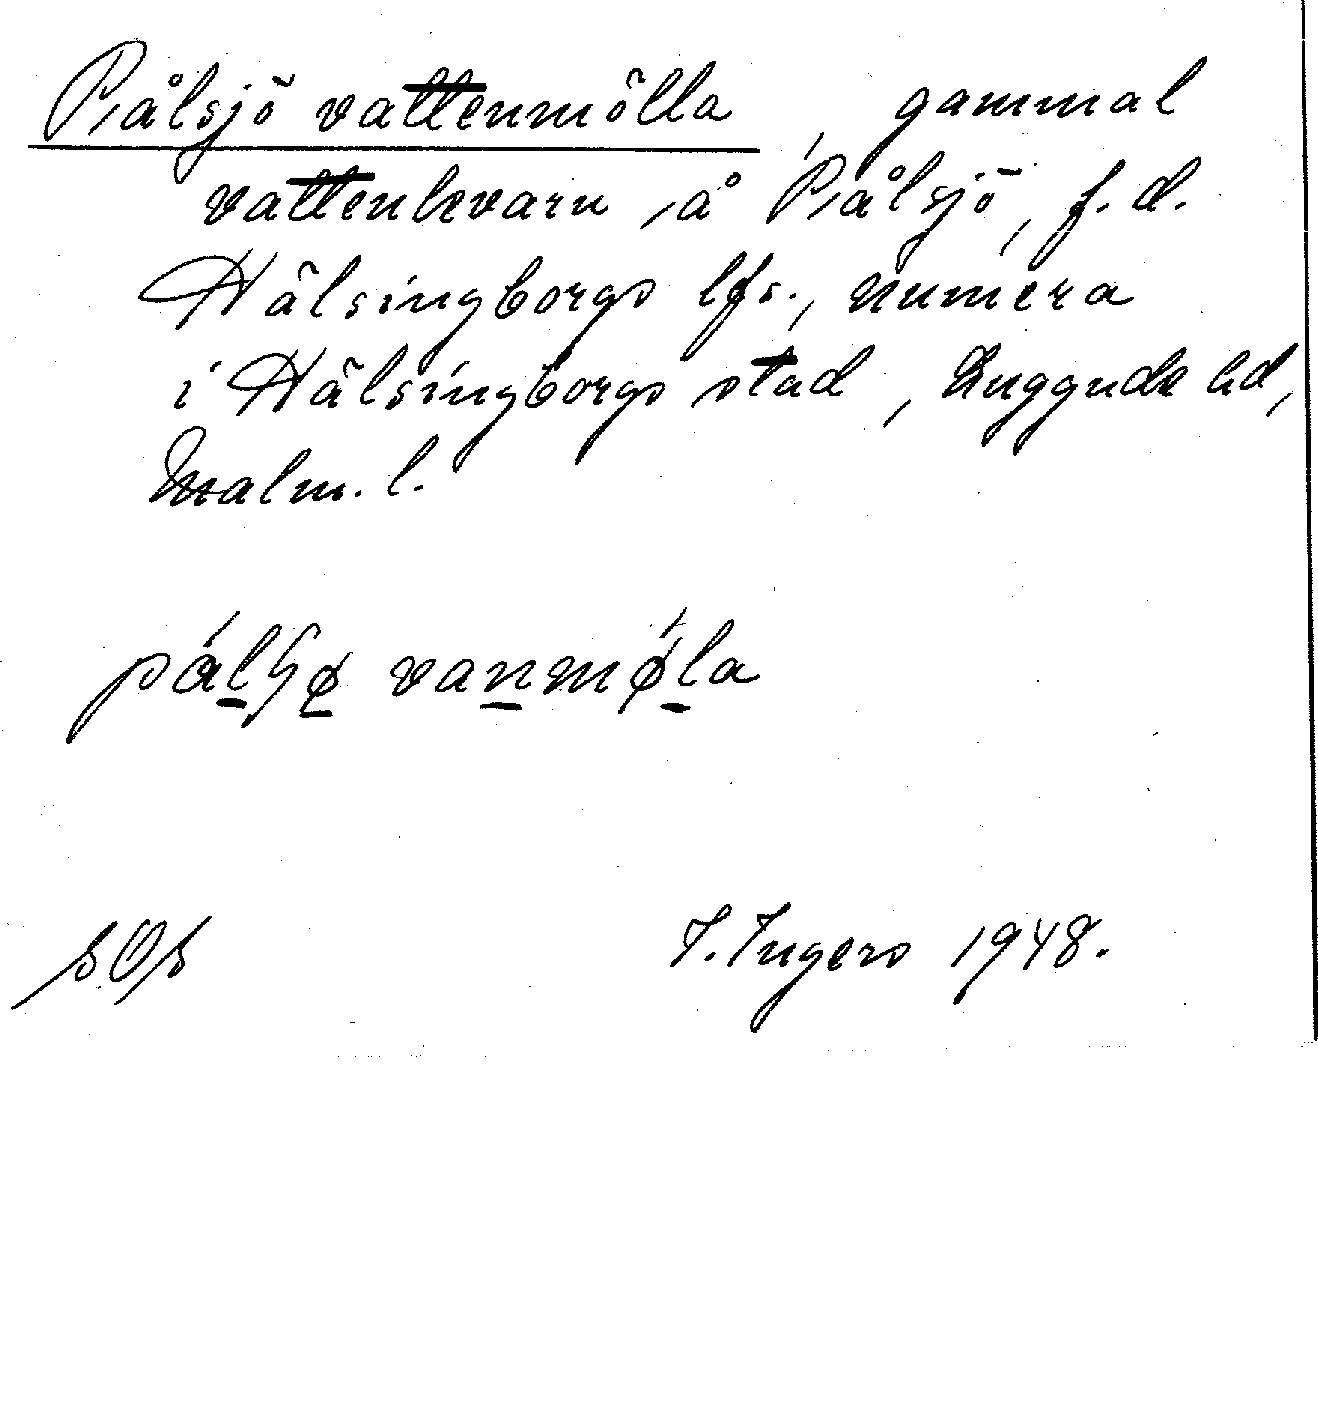 Pålsjö vattenmölla, gammal
vattenkvarn å Pålsjö, f.d.
Hälsingborgs lfs., numera
i Hälsingborgs stad, Luggude hd,
Malm. l.
vanmø̀la
SOS I. Ingers 1948.